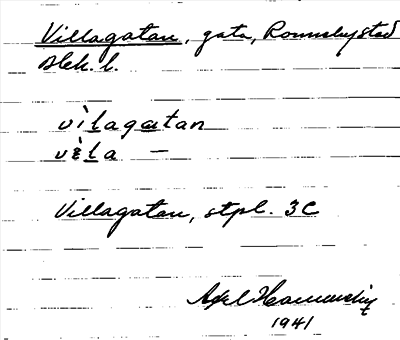 Villagatan, gata, Ronneby stad
Blek. l.
vìlagatan
vìla —
Villagatan, stpl. 3C
Axel
1941